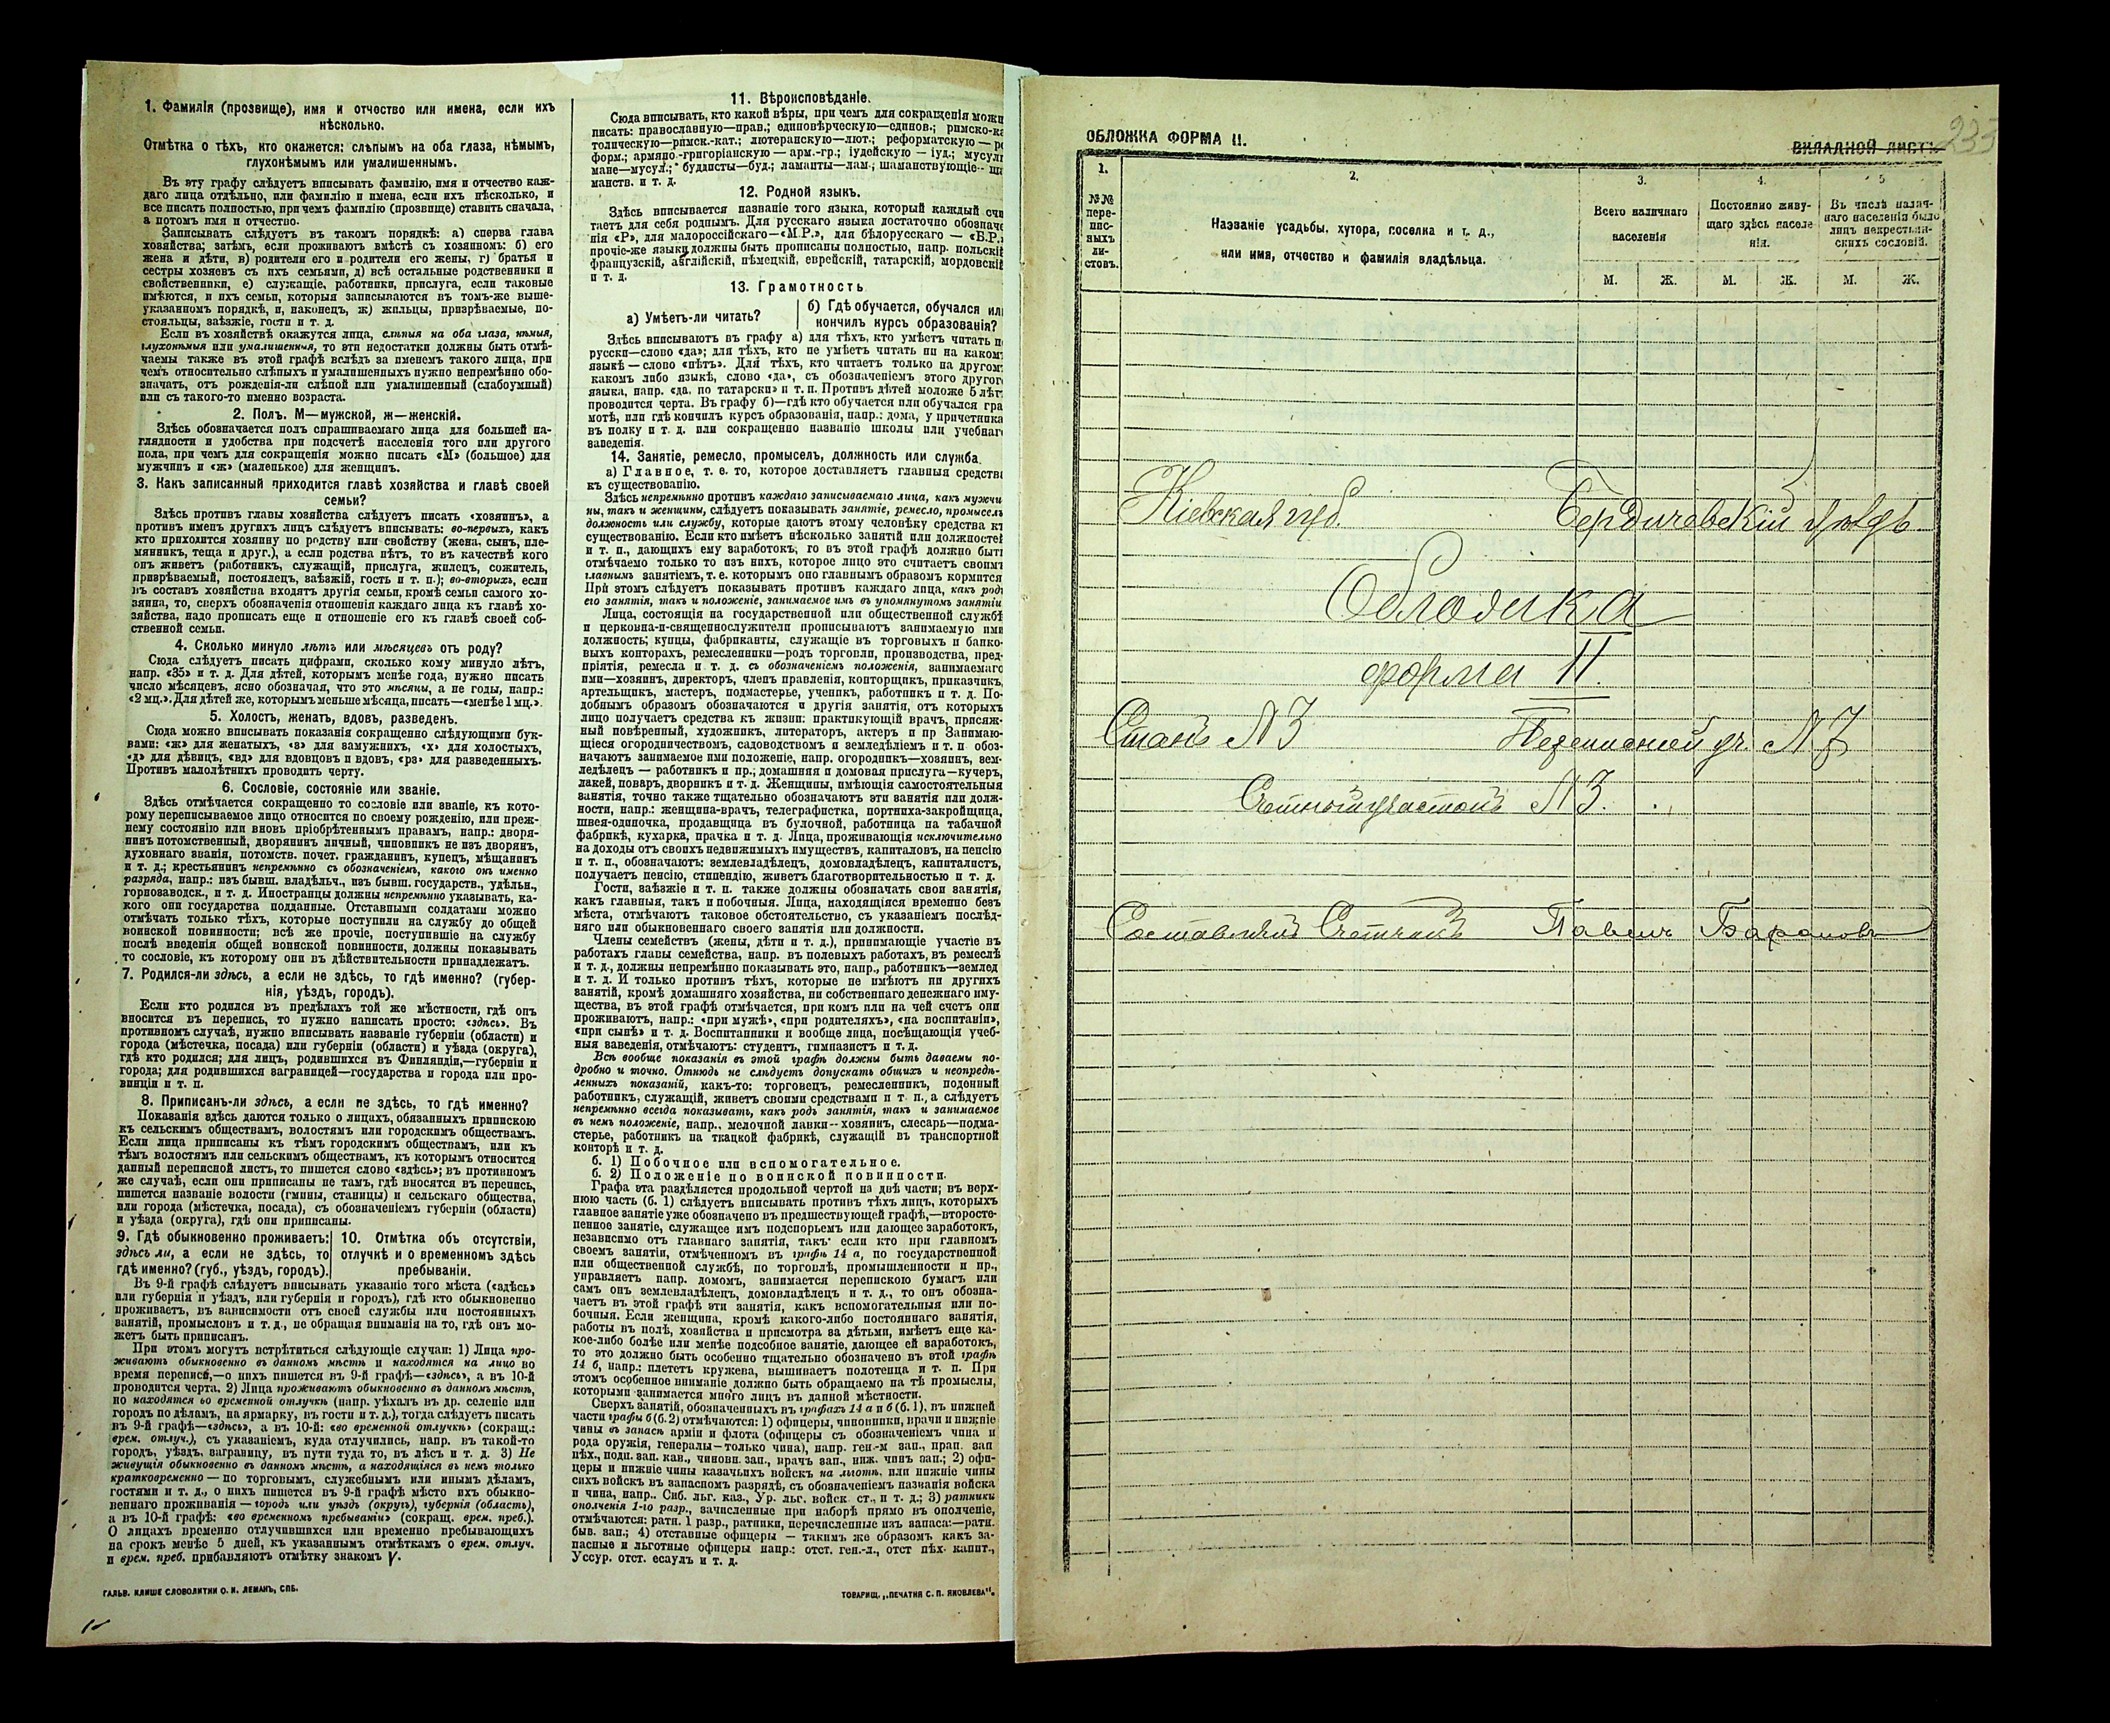 1. Фамилія (прозвище), имя и отчество или имена, если ихъ
нѣсколько.
Отмѣтка о тѣхъ, кто окажется: слѣпымъ на оба глаза, нѣмымъ,
глухонѣмымъ или умалишеннымъ.
Въ эту графу слѣдуетъ вписывать фамилію, имя и отчество каж-
даго лица отдѣльно, или фамилію и имена, если ихъ нѣсколько, и
все писать полностью, при чемъ фамилію (прозвище) ставить сначала,
а потомъ имя и отчество.
Записывать слѣдуетъ въ такомъ порядкѣ: а) сперва глава
хозяйства; затѣмъ, если проживаютъ вмѣстѣ съ хозяиномъ: б) его
жена и дѣти, в) родители его и родители его жены, г) братья и
сестры хозяевъ съ ихъ семьями, д) всѣ остальные родственники и
свойственники, е) служащіе, работники, прислуга, если таковые
имѣются, и ихъ семьи, которыя записываются въ томъ-же выше-
указанномъ порядкѣ, и, наконецъ, ж) жильцы, призрѣваемые, по-
стояльцы, заѣзжіе, гости и т. д.
Если въ хозяйствѣ окажутся лица, слѣпыя на оба глаза, нѣмыя,
глухонѣмыя или умалишенныя, то эти недостатки должны быть отмѣ-
чаемы также въ этой графѣ вслѣдъ за именемъ такого лица, при
чемъ относительно слѣпыхъ и умалишенныхъ нужно непремѣнно обо-
значать, отъ рожденія-ли слѣпой или умалишенный (слабоумный)
или съ такого-то именно возраста.
2. Полъ. М—мужской, ж—женскій.
Здѣсь обозначается полъ спрашиваемаго лица для большей на-
глядности и удобства при подсчетѣ населенія того или другого
пола, при чемъ для сокращенія можно писать «М» (большое) для
мужчинъ и «ж» (маленькое) для женщинъ.
3. Какъ записанный приходится главѣ хозяйства и главѣ своей
семьи?
Здѣсь противъ главы хозяйства слѣдуетъ писать «хозяинъ», а
противъ именъ другихъ лицъ слѣдуетъ вписывать: во-первыхъ, какъ
кто приходится хозяину по родству или свойству (жена, сынъ, пле-
мянникъ, теща и друг.), а если родства нѣтъ, то въ качествѣ кого
онъ живетъ (работникъ, служащій, прислуга, жилецъ, сожитель,
призрѣваемый, постоялецъ, заѣзжій, гость и т. п.); во-вторыхъ, если
въ составъ хозяйства входятъ другія семьи, кромѣ семьи самого хо-
зяина, то, сверхъ обозначенія отношенія каждаго лица къ главѣ хо-
зяйства, надо прописать еще и отношеніе его къ главѣ своей соб-
ственной семьи.
4. Сколько минуло лѣтъ или мѣсяцевъ отъ роду?
Сюда слѣдуетъ писать цифрами, сколько кому минуло лѣтъ,
напр. «35» и т. д. Для дѣтей, которымъ менѣе года, нужно писать
число мѣсяцевъ, ясно обозначая, что это мѣсяцы, а не годы, напр.:
«2 мц.». Для дѣтей же, которымъ меньше мѣсяца, писать—«менѣе 1 мц.».
5. Холостъ, женатъ, вдовъ, разведенъ.
Сюда можно вписывать показанія сокращенно слѣдующими бук-
вами: «ж» для женатыхъ, «з» для замужнихъ, «х» для холостыхъ,
«д» для дѣвицъ, «вд» для вдовцовъ и вдовъ, «рз» для разведенныхъ.
Противъ малолѣтнихъ проводить черту.
6. Сословіе, состояніе или званіе.
Здѣсь отмѣчается сокращенно то сословіе или званіе, къ кото-
рому переписываемое лицо относится по своему рожденію, или преж-
нему состоянію или вновь пріобрѣтеннымъ правамъ, напр.: дворя-
нинъ потомственный, дворянинъ личный, чиновникъ не изъ дворянъ,
духовнаго званія, потомств. почет. гражданинъ, купецъ, мѣщанинъ
и т. д.; крестьянинъ непремѣнно съ обозначеніемъ, какого онъ именно
разряда, напр.: изъ бывш. владѣльч., изъ бывш. государств., удѣльн.,
горнозаводск., и т. д. Иностранцы должны непремѣнно указывать, ка-
кого они государства подданные. Отставными солдатами можно
отмѣчать только тѣхъ, которые поступили на службу до общей
воинской повинности; всѣ же прочіе, поступившіе на службу
послѣ введенія общей воинской повинности, должны показывать
то сословіе, къ которому они въ дѣйствительности принадлежатъ.
7. Родился-ли здѣсь, а если не здѣсь, то гдѣ именно? (губер-
нія, уѣздъ, городъ).
Если кто родился въ предѣлахъ той же мѣстности, гдѣ онъ
вносится въ перепись, то нужно написать просто: «здѣсь». Въ
противномъ случаѣ, нужно вписывать названіе губерніи (области) и
города (мѣстечка, посада) или губерніи (области) и уѣзда (округа),
гдѣ кто родился; для лицъ, родившихся въ Финляндіи,—губерніи и
города; для родившихся заграницей—государства и города или про-
винціи и т. п.
8. Приписанъ-ли здѣсь, а если не здѣсь, то гдѣ именно?
Показанія здѣсь даются только о лицахъ, обязанныхъ припискою
къ сельскимъ обществамъ, волостямъ или городскимъ обществамъ.
Если лица приписаны къ тѣмъ городскимъ обществамъ, или къ
тѣмъ волостямъ или сельскимъ обществамъ, къ которымъ относится
данный переписной листъ, то пишется слово «здѣсь»; въ противномъ
же случаѣ, если они приписаны не тамъ, гдѣ вносятся въ перепись,
пишется названіе волости (гмины, станицы) и сельскаго общества,
или города (мѣстечка, посада), съ обозначеніемъ губерніи (области)
и уѣзда (округа), гдѣ они приписаны.
9. Гдѣ обыкновенно проживаетъ:
здѣсь ли, а если не здѣсь, то
гдѣ именно? (губ., уѣздъ, городъ).
10. Отмѣтка объ отсутствіи,
отлучкѣ и о временномъ здѣсь
пребываніи.
Въ 9-й графѣ слѣдуетъ вписывать указаніе того мѣста («здѣсь»
или губернія и уѣздъ, или губернія и городъ), гдѣ кто обыкновенно
проживаетъ, въ зависимости отъ своей службы или постоянныхъ
занятій, промысловъ и т. д., не обращая вниманія на то, гдѣ онъ мо-
жетъ быть приписанъ.
При этомъ могутъ встрѣтиться слѣдующіе случаи: 1) Лица про-
живаютъ обыкновенно въ данномъ мѣстѣ и находятся на лицо во
время переписи,—о нихъ пишется въ 9-й графѣ—«здѣсь», а въ 10-й
проводится черта. 2) Лица проживаютъ обыкновенно въ данномъ мѣстѣ,
но находятся во временной отлучкѣ (напр. уѣхалъ въ др. селеніе или
городъ по дѣламъ, на ярмарку, въ гости и т. д.), тогда слѣдуетъ писать
въ 9-й графѣ—«здѣсь», а въ 10-й: «во временной отлучкѣ» (сокращ.:
врем. отлуч.), съ указаніемъ, куда отлучились, напр. въ такой-то
городъ, уѣздъ, заграницу, въ пути туда то, въ лѣсъ и т. д. 3) Не
живущія обыкновенно въ данномъ мѣстѣ, а находящіяся въ немъ только
кратковременно — по торговымъ, служебнымъ или инымъ дѣламъ,
гостями и т. д., о нихъ пишется въ 9-й графѣ мѣсто ихъ обыкно-
веннаго проживанія — городъ или уѣздъ (округъ), губернія (область),
а въ 10-й графѣ: «во временномъ пребываніи» (сокращ. врем. преб.).
О лицахъ временно отлучившихся или временно пребывающихъ
на срокъ менѣе 5 дней, къ указаннымъ отмѣткамъ о врем. отлуч.
и врем. преб. прибавляютъ отмѣтку знакомъ V.
ГАЛЬВ. КЛИШЕ СЛОВОЛИТНИ О. И. ЛЕМАНЪ, СПБ.
11. Вѣроисповѣданіе.
Сюда вписывать, кто какой вѣры, при чемъ для сокращенія можн
писать: православную—прав.; единовѣрческую—единов.; римско-ка
толическую—римск.-кат.; лютеранскую—лют.; реформатскую — ре
форм.; армяно-григоріанскую — арм.-гр.; іудейскую — іуд.; мусуль
мане—мусул.; буддисты—буд.; ламаиты—лам.; шаманствующіе—ша
манств. и т. д.
12. Родной языкъ.
Здѣсь вписывается названіе того языка, который каждый счи
таетъ для себя роднымъ. Для русскаго языка достаточно обозначе
нія «Р», для малороссійскаго—«М.Р.», для бѣлорусскаго — «Б.Р.»
прочіе-же языки должны быть прописаны полностью, напр. польскій
французскій, англійскій, нѣмецкій, еврейскій, татарскій, мордовскій
и т. д.
13. Грамотность
а) Умѣетъ-ли читать?
б) Гдѣ обучается, обучался или
кончилъ курсъ образованія?
Здѣсь вписываютъ въ графу а) для тѣхъ, кто умѣетъ читать по
русски—слово «да»; для тѣхъ, кто не умѣетъ читать ни на какомъ
языкѣ — слово «нѣтъ». Для тѣхъ, кто читаетъ только на другомъ
какомъ либо языкѣ, слово «да», съ обозначеніемъ этого другого
языка, напр. «да, по татарски» и т. п. Противъ дѣтей моложе 5 лѣтъ
проводится черта. Въ графу б)—гдѣ кто обучается или обучался гра
мотѣ, или гдѣ кончилъ курсъ образованія, напр.: дома, у причетника
въ полку и т. д. или сокращенно названіе школы или учебнаго
заведенія.
14. Занятіе, ремесло, промыселъ, должность или служба.
а) Главное, т. е. то, которое доставляетъ главныя средства
къ существованію.
Здѣсь непремѣнно противъ каждаго записываемаго лица, какъ мужчи
ны, такъ и женщины, слѣдуетъ показывать занятіе, ремесло, промыселъ
должность или службу, которые даютъ этому человѣку средства къ
существованію. Если кто имѣетъ нѣсколько занятій или должностей
и т. п., дающихъ ему заработокъ, то въ этой графѣ должно быть
отмѣчаемо только то изъ нихъ, которое лицо это считаетъ своимъ
главнымъ занятіемъ, т. е. которымъ оно главнымъ образомъ кормится
При этомъ слѣдуетъ показывать противъ каждаго лица, какъ родъ
его занятія, такъ и положеніе, занимаемое имъ въ упомянутомъ занятіи
Лица, состоящія на государственной или общественной службѣ
и церковна-и-священнослужители прописываютъ занимаемую ими
должность; купцы, фабриканты, служащіе въ торговыхъ и банко-
выхъ конторахъ, ремесленники—родъ торговли, производства, пред-
пріятія, ремесла и т. д. съ обозначеніемъ положенія, занимаемаго
ими—хозяинъ, директоръ, членъ правленія, конторщикъ, приказчикъ,
артельщикъ, мастеръ, подмастерье, ученикъ, работникъ и т. д. По-
добнымъ образомъ обозначаются и другія занятія, отъ которыхъ
лицо получаетъ средства къ жизни: практикующій врачъ, присяж-
ный повѣренный, художникъ, литераторъ, актеръ и пр Занимаю-
щіеся огородничествомъ, садоводствомъ и земледѣліемъ и т. п обоз-
начаютъ занимаемое ими положеніе, напр. огородникъ—хозяинъ, зем-
ледѣлецъ — работникъ и пр.; домашняя и домовая прислуга—кучеръ,
лакей, поваръ, дворникъ и т. д. Женщины, имѣющія самостоятельныя
занятія, точно также тщательно обозначаютъ эти занятія или долж-
ности, напр.: женщина-врачъ, телеграфистка, портниха-закройщица,
швея-одиночка, продавщица въ булочной, работница на табачной
фабрикѣ, кухарка, прачка и т. д. Лица, проживающія исключительно
на доходы отъ своихъ недвижимыхъ имуществъ, капиталовъ, на пенсію
и т. п., обозначаютъ: землевладѣлецъ, домовладѣлецъ, капиталистъ,
получаетъ пенсію, стипендію, живетъ благотворительностью и т. д.
Гости, заѣзжіе и т. п. также должны обозначать свои занятія,
какъ главныя, такъ и побочныя. Лица, находящіяся временно безъ
мѣста, отмѣчаютъ таковое обстоятельство, съ указаніемъ послѣд-
няго или обыкновеннаго своего занятія или должности.
Члены семействъ (жены, дѣти и т. д.), принимающіе участіе въ
работахъ главы семейства, напр. въ полевыхъ работахъ, въ ремеслѣ
и т. д., должны непремѣнно показывать это, напр., работникъ—землед
и т. д. И только противъ тѣхъ, которые не имѣютъ ни другихъ
занятій, кромѣ домашняго хозяйства, ни собственнаго денежнаго иму-
щества, въ этой графѣ отмѣчается, при комъ или на чей счетъ они
проживаютъ, напр.: «при мужѣ», «при родителяхъ», «на воспитаніи»,
«при сынѣ» и т. д. Воспитанники и вообще лица, посѣщающія учеб-
ныя заведенія, отмѣчаютъ: студентъ, гимназистъ и т. д.
Всѣ вообще показанія въ этой графѣ должны быть даваемы по-
дробно и точно. Отнюдь не слѣдуетъ допускать общихъ и неопредѣ-
ленныхъ показаній, какъ-то: торговецъ, ремесленникъ, поденный
работникъ, служащій, живетъ своими средствами и т п., а слѣдуетъ
непремѣнно всегда показывать, какъ родъ занятія, такъ и занимаемое
въ немъ положеніе, напр., мелочной лавки—хозяинъ, слесарь—подма-
стерье, работникъ на ткацкой фабрикѣ, служащій въ транспортной
конторѣ и т. д.
б. 1) Побочное или вспомогательное.
б. 2) Положеніе по воинской повинности.
Графа эта раздѣляется продольной чертой на двѣ части; въ верх-
нюю часть (б. 1) слѣдуетъ вписывать противъ тѣхъ лицъ, которыхъ
главное занятіе уже обозначено въ предшествующей графѣ,—второсте-
пенное занятіе, служащее имъ подспорьемъ или дающее заработокъ,
независимо отъ главнаго занятія, такъ если кто при главномъ
своемъ занятіи, отмѣченномъ въ графѣ 14 а, по государственной
или общественной службѣ, по торговлѣ, промышленности и пр.,
управляетъ напр. домомъ, занимается перепискою бумагъ или
самъ онъ землевладѣлецъ, домовладѣлецъ и т. д., то онъ обозна-
чаетъ въ этой графѣ эти занятія, какъ вспомогательныя или по-
бочныя. Если женщина, кромѣ какого-либо постояннаго занятія,
работы въ полѣ, хозяйства и присмотра за дѣтьми, имѣетъ еще ка-
кое-либо болѣе или менѣе подсобное занятіе, дающее ей заработокъ,
то это должно быть особенно тщательно обозначено въ этой графѣ
14 б, напр.: плететъ кружева, вышиваетъ полотенца и т. п. При
этомъ особенное вниманіе должно быть обращаемо на тѣ промыслы,
которыми занимается много лицъ въ данной мѣстности.
Сверхъ занятій, обозначенныхъ въ графахъ 14 а и б (б. 1), въ нижней
части графы б (б. 2) отмѣчаются: 1) офицеры, чиновники, врачи и нижніе
чины въ запасѣ арміи и флота (офицеры съ обозначеніемъ чина и
рода оружія, генералы—только чина), напр. ген.-м зап., прап. зап
пѣх., подп. зап. кав., чиновн. зап., врачъ зап., ниж. чинъ зап.; 2) офи-
церы и нижніе чины казачьихъ войскъ на льготѣ, или нижніе чины
сихъ войскъ въ запасномъ разрядѣ, съ обозначеніемъ названія войска
и чина, напр.. Сиб. льг. каз., Ур. льг. войск ст., и т. д.; 3) ратники
ополченія 1-го разр., зачисленные при наборѣ прямо въ ополченіе,
отмѣчаются: ратн. 1 разр., ратники, перечисленные изъ запаса:—ратн.
быв. зап.; 4) отставные офицеры — такимъ же образомъ какъ за-
пасные и льготные офицеры напр.: отст. ген.-л., отст пѣх. капит.,
Уссур. отст. есаулъ и т. д.
ТОВАРИЩ. „ПЕЧАТНЯ С. П. ЯКОВЛЕВА“.
ОБЛОЖКА ФОРМА II.
ВКЛАДНОЙ ЛИСТЪ
233
1.
№№
пере-
пис-
ныхъ
ли-
стовъ.
2.
Названіе усадьбы, хутора, поселка и т. д.,
или имя, отчество и фамилія владѣльца.
3.
Всего наличнаго
населенія
4.
Постоянно живу-
щаго здѣсь населе
нія.
5
Въ числѣ налич-
наго населенія было
лицъ некрестьян-
скихъ сословій.
М. Ж. М. Ж. М. Ж.
Кіевская губ. Бердичевскій уѣздъ
Обложка
форма II.
Станъ N 3 Переписной уч. N 7
Счетный участокъ N 3.
Составлялъ Счетчикъ Павелъ Барановъ